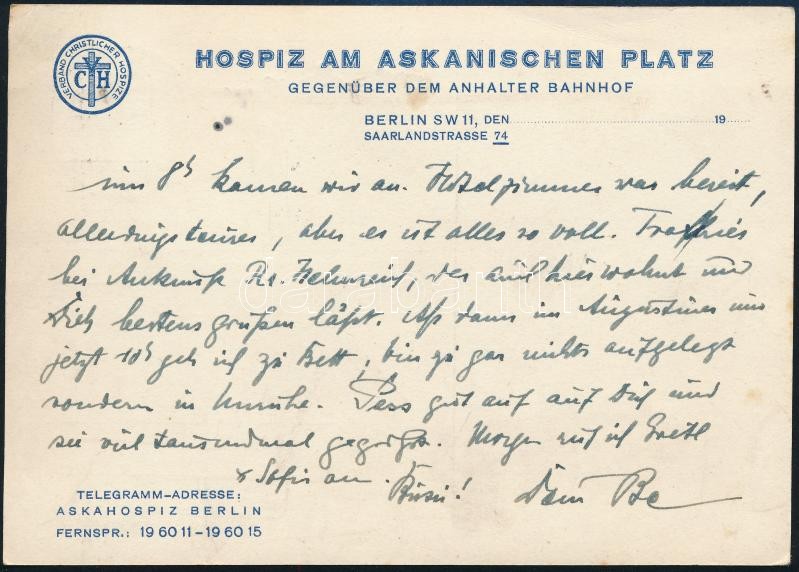 VERBAND CHRISTLICHER HOSPIZE
C H
HOSPIZ AM ASKANISCHEN PLATZ
GEGENÜBER DEM ANHALTER BAHNHOF
BERLIN SW 11, DEN 19
SAARLANDSTRASSE 74
um 8h kamen wir an. Hotelzimmer war bereit,
allerdings teures, aber es ist alles so voll. Traf hier
bei Ankunft Dr. der auch hier wohnt und
Dich bestens grüßen läßt. Aß dann im Augustiner und
jetzt 10h geh ich zu Bett, bin zu gar nichts aufgelegt
sondern in Unruhe. Pass gut auf auf Dich und
sei viel tausendmal gegrüßt. Morgen ruf ich Gretl
+ Sofie an. Bussi! Dein
TELEGRAMM-ADRESSE:
ASKAHOSPIZ BERLIN
FERNSPR.: 19 60 11 – 19 60 15
darabanth